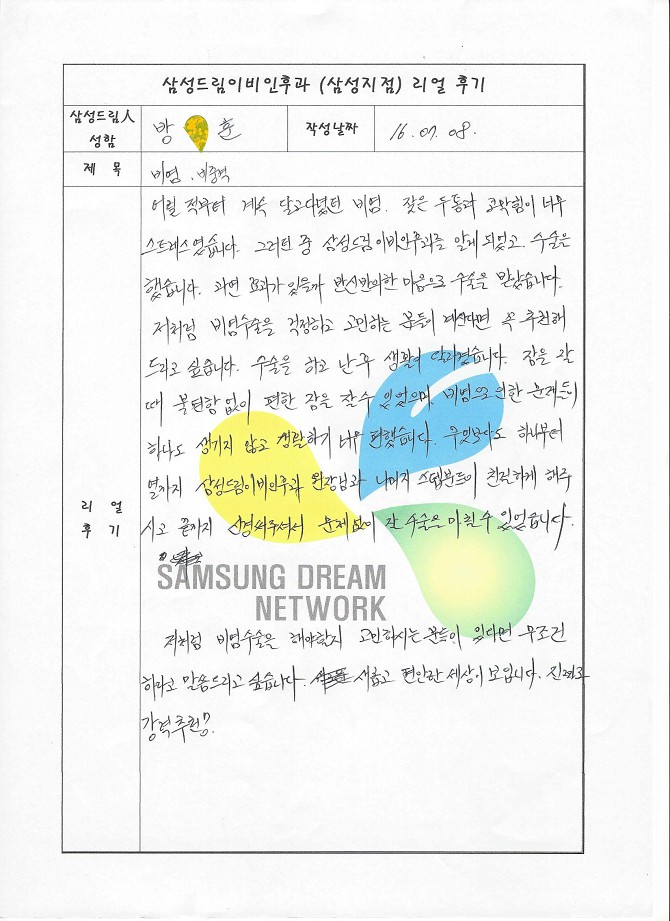 삼성드림이비인후과 (삼성지점) 리얼 후기
삼성드림人 성함
방 훈
작성날짜
16. 07. 08.
제 목
비염, 비중격
리 얼 후 기
어릴 적부터 계속 달고다녔던 비염. 잦은 두통과 코막힘이 너무
스트레스였습니다. 그러던 중 삼성드림이비인후과를 알게 되었고, 수술을
했습니다. 과연 효과가 있을까 반신반의한 마음으로 수술을 받았습니다.
저처럼 비염수술을 걱정하고 고민하는 분들이 계신다면 꼭 추천해
드리고 싶습니다. 수술을 하고 난 후 생활이 달라졌습니다. 잠을 잘
때 불편함 없이 편한 잠을 잘 수 있었으며, 비염으로 인한 문제들이
하나도 생기지 않고 생활하기 너무 편했습니다. 무엇보다도 하나부터
열까지 삼성드림이비인후과 원장님과 나머지 스텝분들이 친절하게 해주
시고 끝까지 신경써주셔서 문제없이 잘 수술을 마칠 수 있었습니다.
SAMSUNG DREAM
NETWORK
저처럼 비염수술을 해야할지 고민하시는 분들이 있다면 무조건
하라고 말씀드리고 싶습니다. 새롭고 편안한 세상이 보입니다. 진짜로
강력추천!